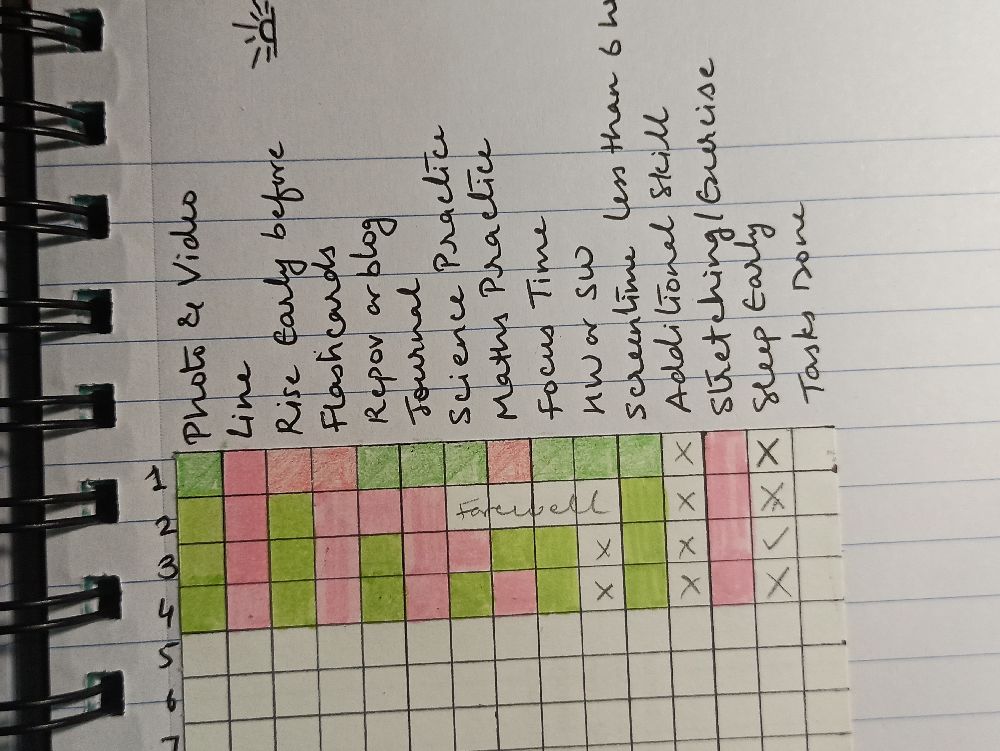 Photo & Video
Line
Rise Early before
Flashcards
Repov or blog
Journal
Science Practice
Maths Practice
Focus Time
HW or SW
Screentime less than 6
Additional Skill
Stretching/Exercise
Sleep Early
Tasks Done
1 X X
2 Farewell X X
3 X X ✓
4 X X X
5
6
7